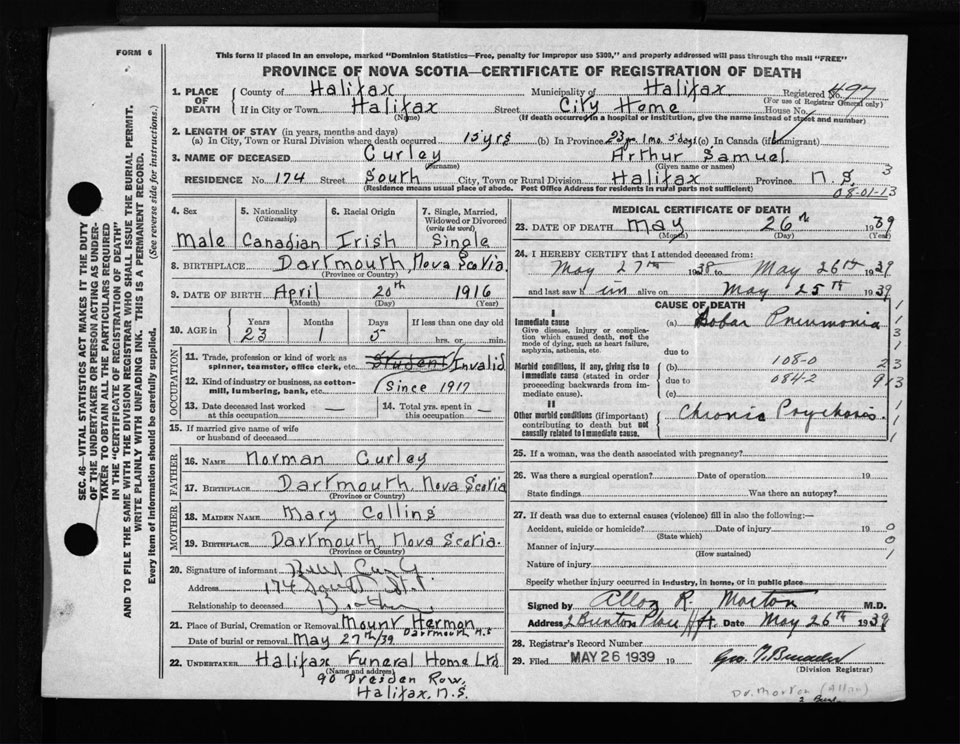 FORM 6
This form if placed in an envelope, marked "Dominion Statistics—Free, penalty for improper use $300," and properly addressed will pass through the mail "FREE"
PROVINCE OF NOVA SCOTIA—CERTIFICATE OF REGISTRATION OF DEATH
1. PLACE OF DEATH
County of Halifax Municipality of Halifax Registered No. 497
(For use of Registrar General only)
If in City or Town Halifax Street City Home House No.
(Name) (If death occurred in a hospital or institution, give the name instead of street and number)
2. LENGTH OF STAY (in years, months and days)
(a) In City, Town or Rural Division where death occurred 15 yrs (b) In Province 23 yr 1 mo 5 days (c) In Canada (if immigrant)
3. NAME OF DECEASED Curley Arthur Samuel
(Surname) (Given name or names)
RESIDENCE No. 174 Street South City, Town or Rural Division Halifax Province N.S.
(Residence means usual place of abode. Post Office Address for residents in rural parts not sufficient)
3
08-01-13
4. Sex Male
5. Nationality (Citizenship) Canadian
6. Racial Origin Irish
7. Single, Married, Widowed or Divorced (write the word) Single
8. BIRTHPLACE Dartmouth, Nova Scotia.
(Province or Country)
9. DATE OF BIRTH April 20th 1916
(Month) (Day) (Year)
10. AGE in Years Months Days If less than one day old
23 1 5 hrs. or min.
OCCUPATION
11. Trade, profession or kind of work as spinner, teamster, office clerk, etc. Student Invalid
12. Kind of industry or business, as cotton-mill, lumbering, bank, etc. (Since 1917
13. Date deceased last worked at this occupation —
14. Total yrs. spent in this occupation —
15. If married give name of wife or husband of deceased
FATHER
16. NAME Norman Curley
17. BIRTHPLACE Dartmouth Nova Scotia
(Province or Country)
MOTHER
18. MAIDEN NAME Mary Collins
19. BIRTHPLACE Dartmouth Nova Scotia.
(Province or Country)
20. Signature of informant
Address 174 South St.
Relationship to deceased Brother
21. Place of Burial, Cremation or Removal Mount Hermon
Dartmouth N.S
Date of burial or removal May 27th/39
22. UNDERTAKER Halifax Funeral Home Ltd
(Name and address)
90 Dresden Row,
Halifax, N.S.
MEDICAL CERTIFICATE OF DEATH
23. DATE OF DEATH May 26th 1939
(Month) (Day) (Year)
24. I HEREBY CERTIFY that I attended deceased from:
May 27th 1938 to May 26th 1939
and last saw him alive on May 25th 1939
CAUSE OF DEATH
I
Immediate cause (a) Lobar Pneumonia
Give disease, injury or complication which caused death, not the mode of dying, such as heart failure, asphyxia, asthenia, etc.
due to
Morbid conditions, if any, giving rise to immediate cause (stated in order proceeding backwards from immediate cause).
(b) 108-0
due to 084-2
(c)
II
Other morbid conditions (if important) contributing to death but not causally related to immediate cause.
Chronic Psychosis.
25. If a woman, was the death associated with pregnancy?
26. Was there a surgical operation? Date of operation 19
State findings Was there an autopsy?
27. If death was due to external causes (violence) fill in also the following:—
Accident, suicide or homicide? Date of injury 19
(State which)
Manner of injury
(How sustained)
Nature of injury
Specify whether injury occurred in industry, in home, or in public place
Signed by Allan R. Morton M.D.
Address 2 Brenton Place Hfx. Date May 26th 1939
28. Registrar's Record Number
29. Filed MAY 26 1939 19
(Division Registrar)
Dr. Morton (Allan)
SEC. 46—VITAL STATISTICS ACT MAKES IT THE DUTY
OF THE UNDERTAKER OR PERSON ACTING AS UNDERTAKER TO OBTAIN ALL THE PARTICULARS REQUIRED
IN THE "CERTIFICATE OF REGISTRATION OF DEATH"
AND TO FILE THE SAME WITH THE DIVISION REGISTRAR WHO SHALL ISSUE THE BURIAL PERMIT.
WRITE PLAINLY WITH UNFADING INK. THIS IS A PERMANENT RECORD.
Every item of information should be carefully supplied. (See reverse side for instructions.)